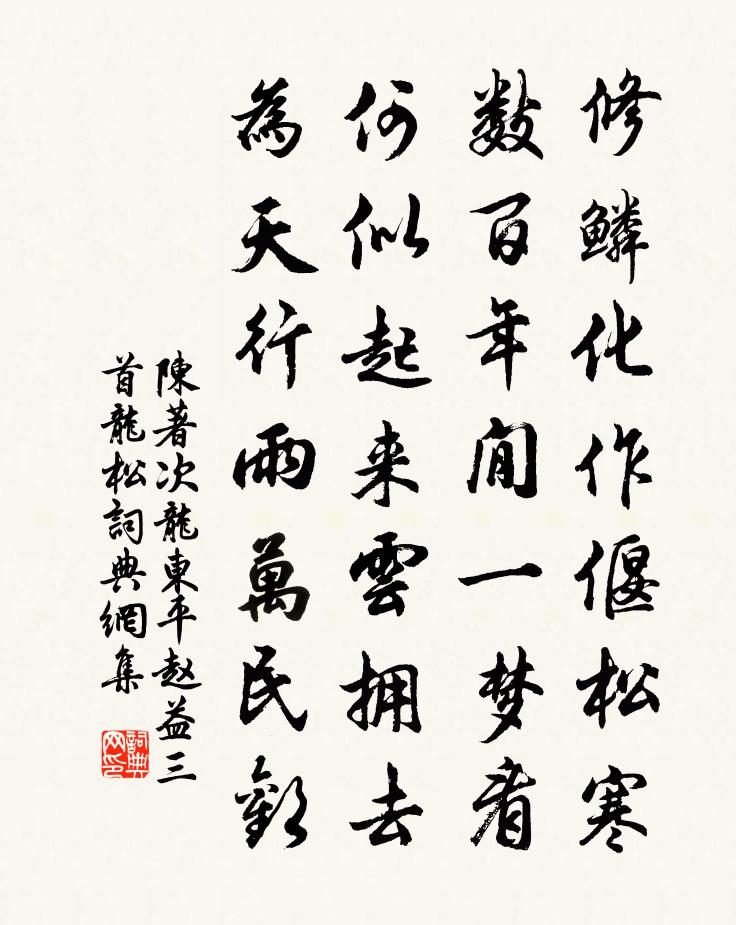 修鱗化作偃松寒
数百年间一梦看
何似起来雲拥去
為天行雨萬民歡
陳著次龍東平赵益三
首龍松詞典網集
詞典网印